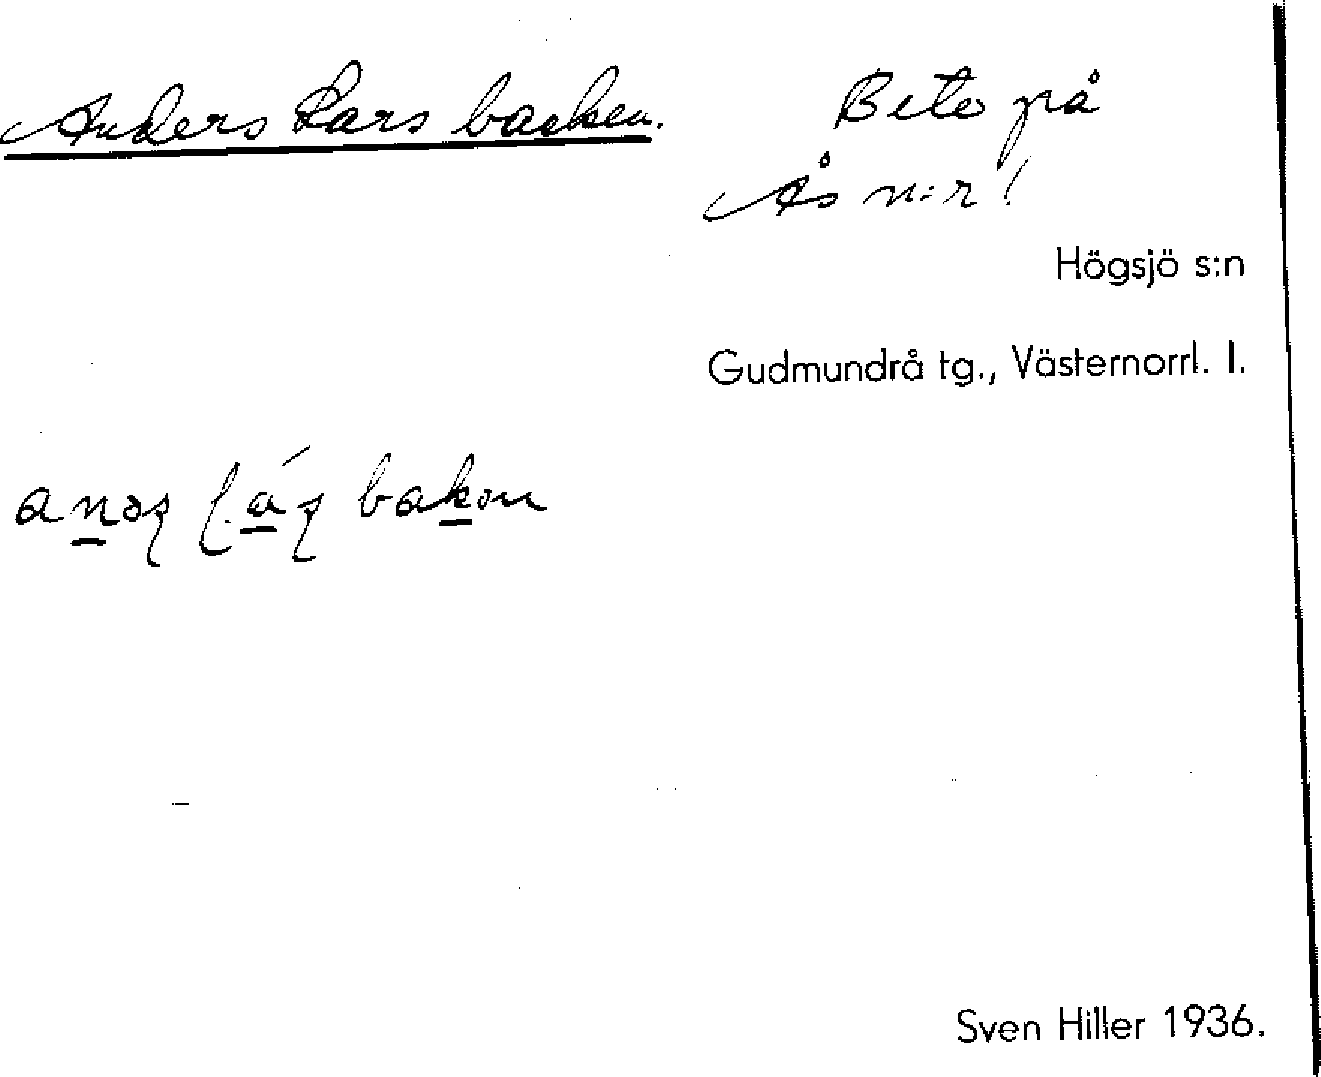 Anders Lars backen.
Bete på
Ås n:r 1
Högsjö s:n
Gudmundrå tg., Västernorrl. l.
bakən
Sven Hiller 1936.